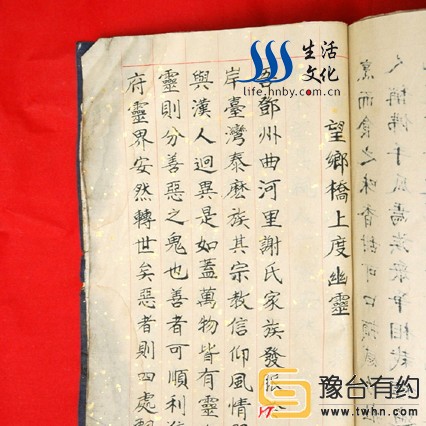 生活
文化
life.hnby.com.cn
烹而食之味香可口
望鄉橋上度幽靈
鄧州曲河里謝氏家族發
岸臺灣泰麽族其宗教信仰風情
與漢人迥異是如蓋萬物皆有靈
靈則分善惡之鬼也善者可順利
府靈界安然轉世矣惡者則四處
豫台有约
www.twhn.com